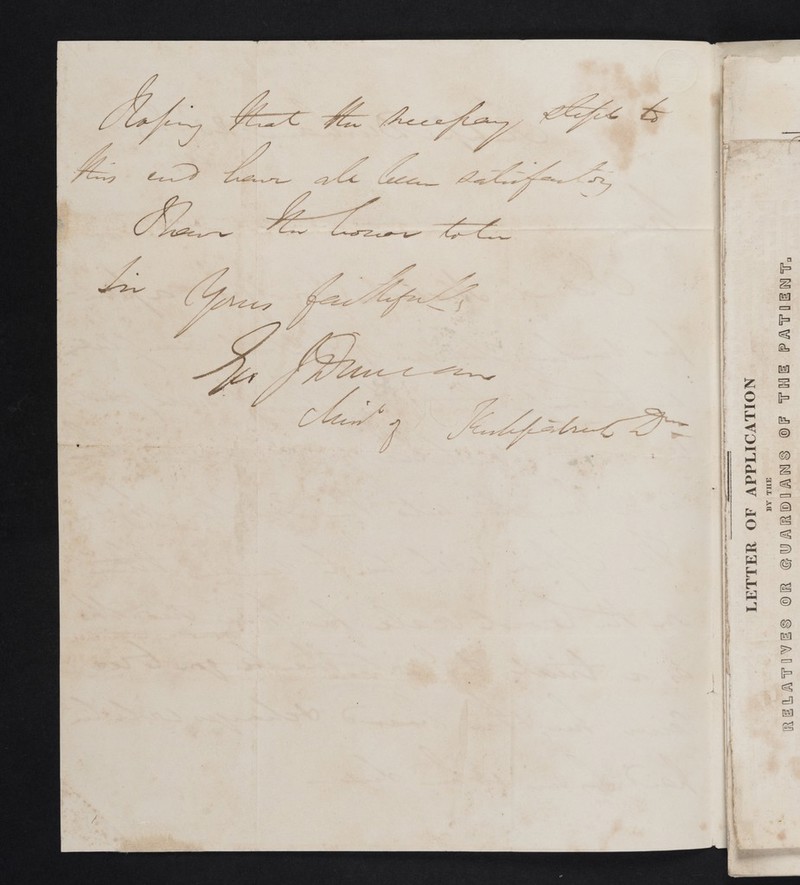 Hoping that the necessary steps to
this end have all been satisfactory
I have the honor to be
Sir Yours faithfully
Geo J Duncan
Minr of Kirkpatrick Dm
LETTER OF APPLICATION
BY THE
RELATIVES OR GUARDIANS OF THE PATIENT.